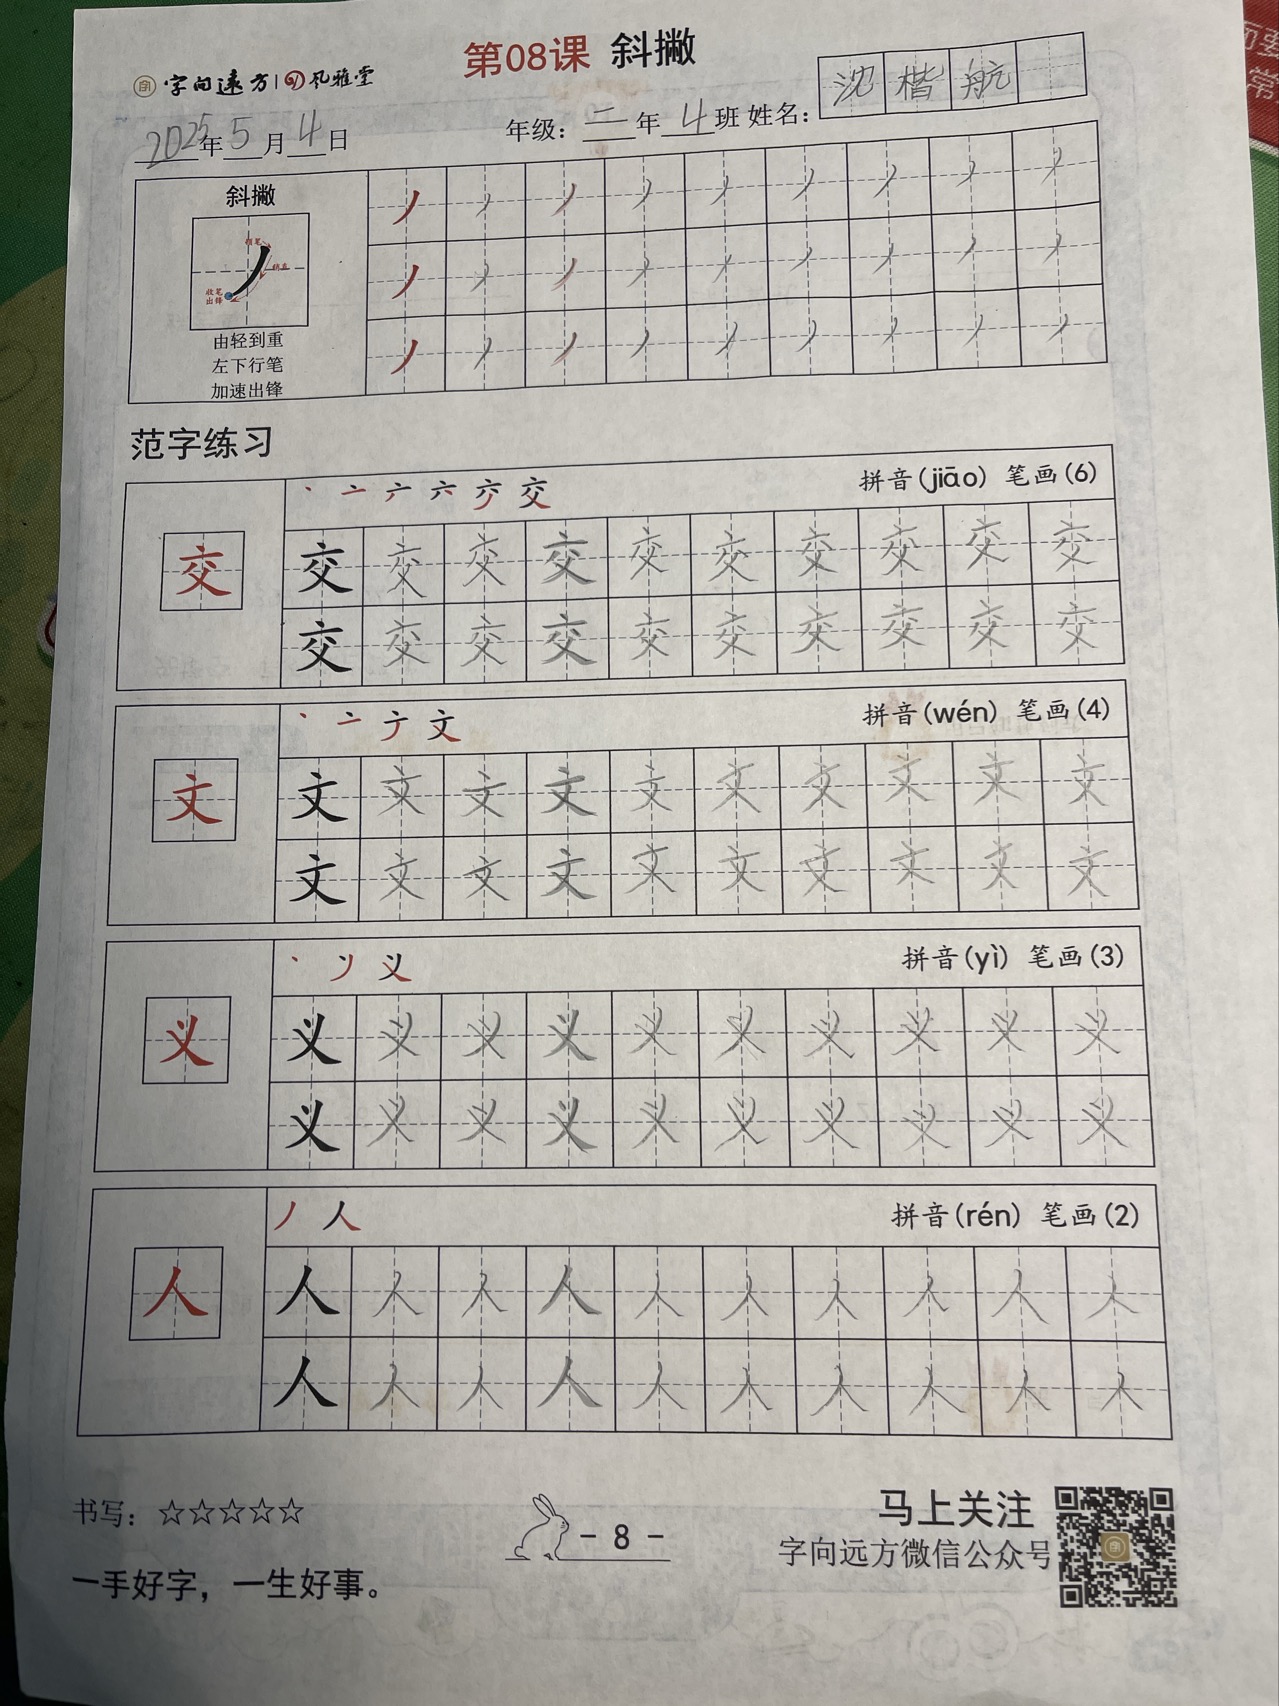 字向远方 风雅堂
第08课 斜撇
2025年5月4日
年级：二年4班 姓名：沈楷航
斜撇
收笔
出锋
由轻到重
左下行笔
加速出锋
范字练习
拼音(jiāo) 笔画(6)
丶 亠 六 交
交 交 交 交 交 交 交 交 交 交 交
交 交 交 交 交 交 交 交 交 交
拼音(wén) 笔画(4)
丶 亠 文
文 文 文 文 文 文 文 文 文 文 文
文 文 文 文 文 文 文 文 文 文
拼音(yì) 笔画(3)
丶 义
义 义 义 义 义 义 义 义 义 义 义
义 义 义 义 义 义 义 义 义 义
拼音(rén) 笔画(2)
丿 人
人 人 人 人 人 人 人 人 人 人 人
人 人 人 人 人 人 人 人 人 人
书写：☆☆☆☆☆
- 8 -
马上关注
字向远方微信公众号
一手好字，一生好事。